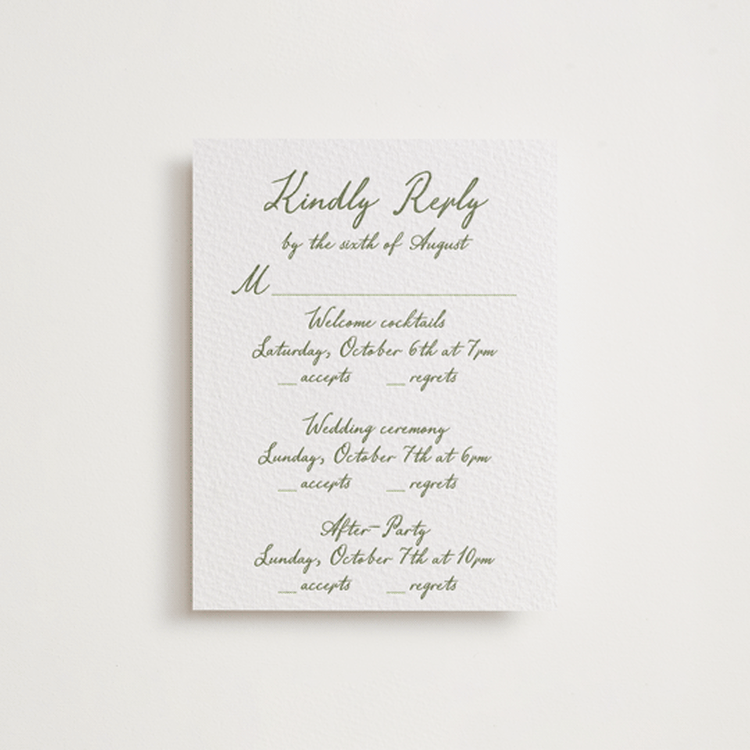 Kindly Reply
by the sixth of August
M
Welcome cocktails
Saturday, October 6th at 7pm
__ accepts __ regrets
Wedding ceremony
Sunday, October 7th at 6pm
__ accepts __ regrets
After-Party
Sunday, October 7th at 10pm
__ accepts __ regrets